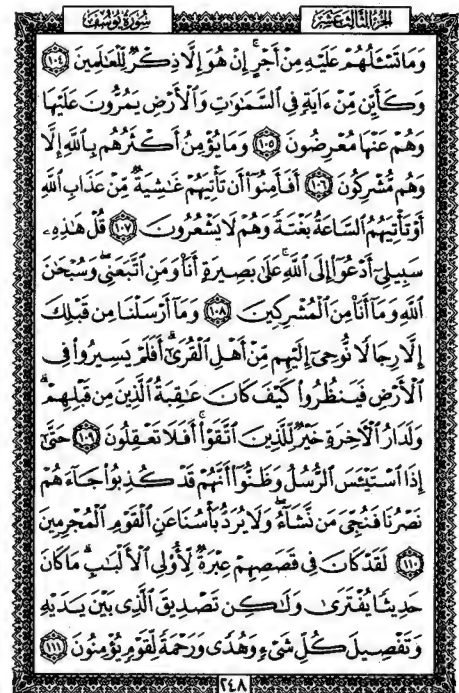 الجزء الثالث عشر
سورة يوسف
وَمَا تَسْـَٔلُهُمْ عَلَيْهِ مِنْ أَجْرٍ ۚ إِنْ هُوَ إِلَّا ذِكْرٌ لِّلْعَـٰلَمِينَ ١٠٤
وَكَأَيِّن مِّنْ ءَايَةٍ فِى ٱلسَّمَـٰوَٰتِ وَٱلْأَرْضِ يَمُرُّونَ عَلَيْهَا
وَهُمْ عَنْهَا مُعْرِضُونَ ١٠٥ وَمَا يُؤْمِنُ أَكْثَرُهُم بِٱللَّهِ إِلَّا
وَهُم مُّشْرِكُونَ ١٠٦ أَفَأَمِنُوٓا۟ أَن تَأْتِيَهُمْ غَـٰشِيَةٌ مِّنْ عَذَابِ ٱللَّهِ
أَوْ تَأْتِيَهُمُ ٱلسَّاعَةُ بَغْتَةً وَهُمْ لَا يَشْعُرُونَ ١٠٧ قُلْ هَـٰذِهِۦ
سَبِيلِىٓ أَدْعُوٓا۟ إِلَى ٱللَّهِ ۚ عَلَىٰ بَصِيرَةٍ أَنَا۠ وَمَنِ ٱتَّبَعَنِى ۖ وَسُبْحَـٰنَ
ٱللَّهِ وَمَآ أَنَا۠ مِنَ ٱلْمُشْرِكِينَ ١٠٨ وَمَآ أَرْسَلْنَا مِن قَبْلِكَ
إِلَّا رِجَالًا نُّوحِىٓ إِلَيْهِم مِّنْ أَهْلِ ٱلْقُرَىٰٓ ۗ أَفَلَمْ يَسِيرُوا۟ فِى
ٱلْأَرْضِ فَيَنظُرُوا۟ كَيْفَ كَانَ عَـٰقِبَةُ ٱلَّذِينَ مِن قَبْلِهِمْ ۗ
وَلَدَارُ ٱلْـَٔاخِرَةِ خَيْرٌ لِّلَّذِينَ ٱتَّقَوْا۟ ۗ أَفَلَا تَعْقِلُونَ ١٠٩ حَتَّىٰٓ
إِذَا ٱسْتَيْـَٔسَ ٱلرُّسُلُ وَظَنُّوٓا۟ أَنَّهُمْ قَدْ كُذِبُوا۟ جَآءَهُمْ
نَصْرُنَا فَنُجِّىَ مَن نَّشَآءُ ۖ وَلَا يُرَدُّ بَأْسُنَا عَنِ ٱلْقَوْمِ ٱلْمُجْرِمِينَ
١١٠ لَقَدْ كَانَ فِى قَصَصِهِمْ عِبْرَةٌ لِّأُو۟لِى ٱلْأَلْبَـٰبِ ۗ مَا كَانَ
حَدِيثًا يُفْتَرَىٰ وَلَـٰكِن تَصْدِيقَ ٱلَّذِى بَيْنَ يَدَيْهِ
وَتَفْصِيلَ كُلِّ شَىْءٍ وَهُدًى وَرَحْمَةً لِّقَوْمٍ يُؤْمِنُونَ ١١١
٢٤٨